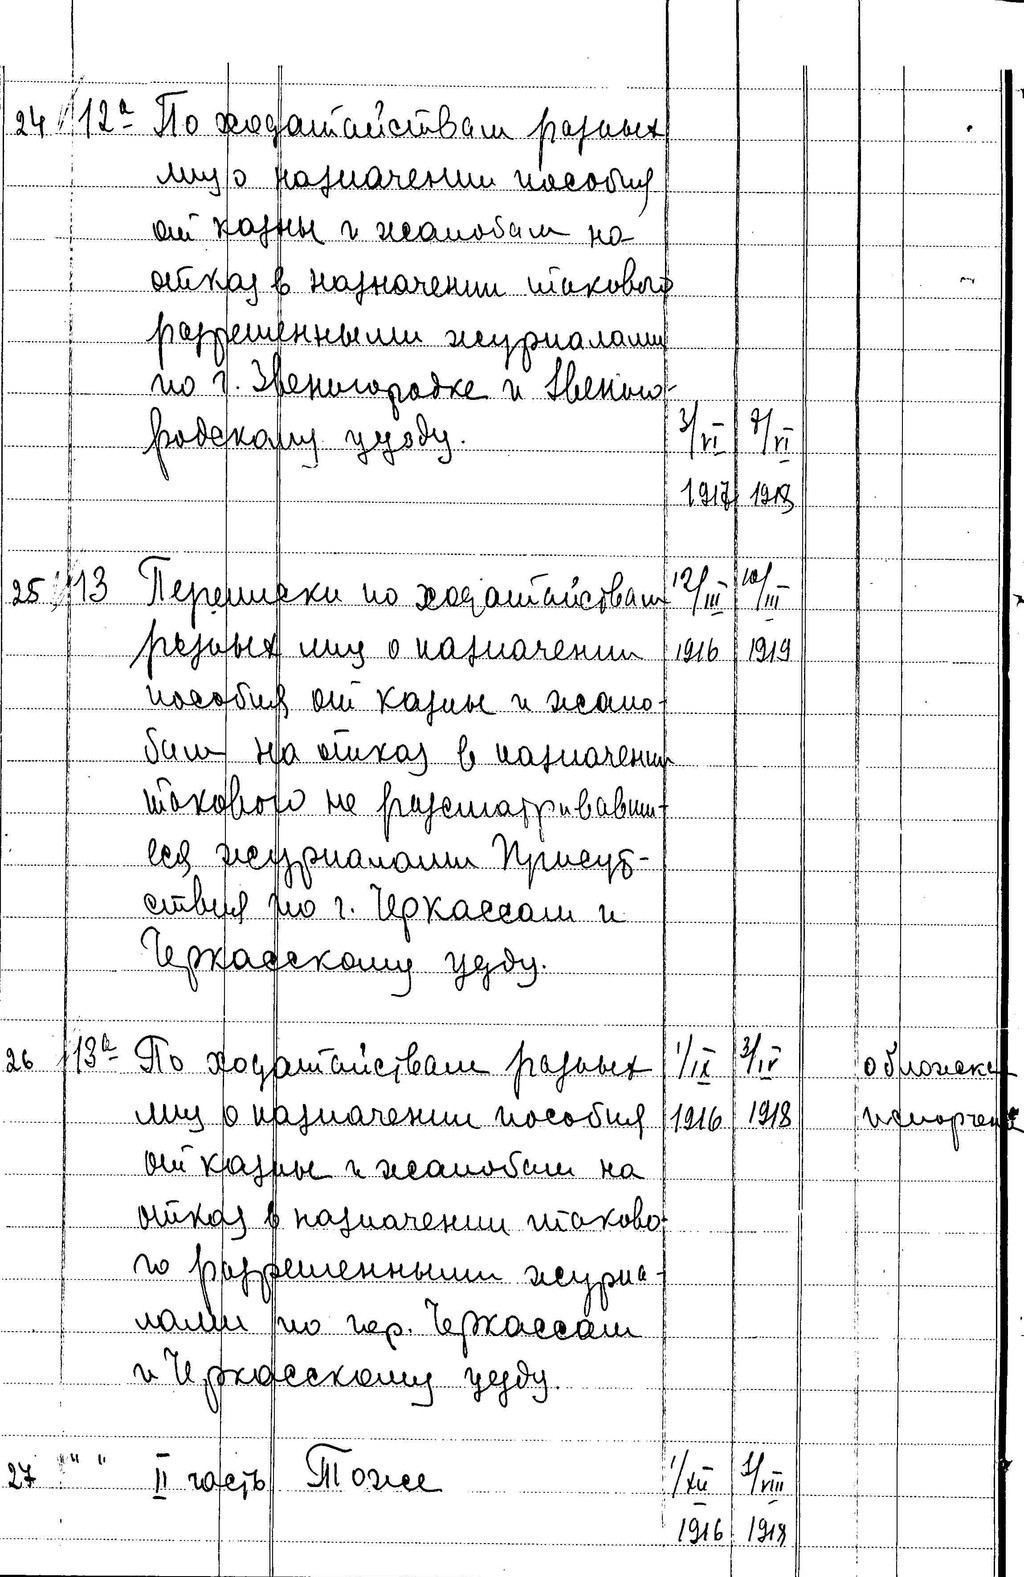 24 12а По ходатайствам разных
лиц о назначении пособия
от казны и жалобам на
отказ в назначении такового
разрешенными журналами
по г. Звенигородке и Звениго-
родскому уезду. 3/VI /VI
1917 1918
25 13 Переписки по ходатайствам 12/III 10/III
разных лиц о назначении 1916 1919
пособия от казны и жало-
бам на отказ в назначении
такового не рассматривавши-
еся журналами Присут-
ствия по г. Черкассам и
Черкасскому уезду.
26 13а По ходатайствам разных 1/IX 3/IV обложка
лиц о назначении пособия 1916 1918 испорчена
от казны и жалобам на
отказ в назначении таково-
го разрешенными журна-
лами по гор. Черкассам
и Черкасскому уезду.
27 " " II часть Тоже 1/XII /VIII
1916 1918